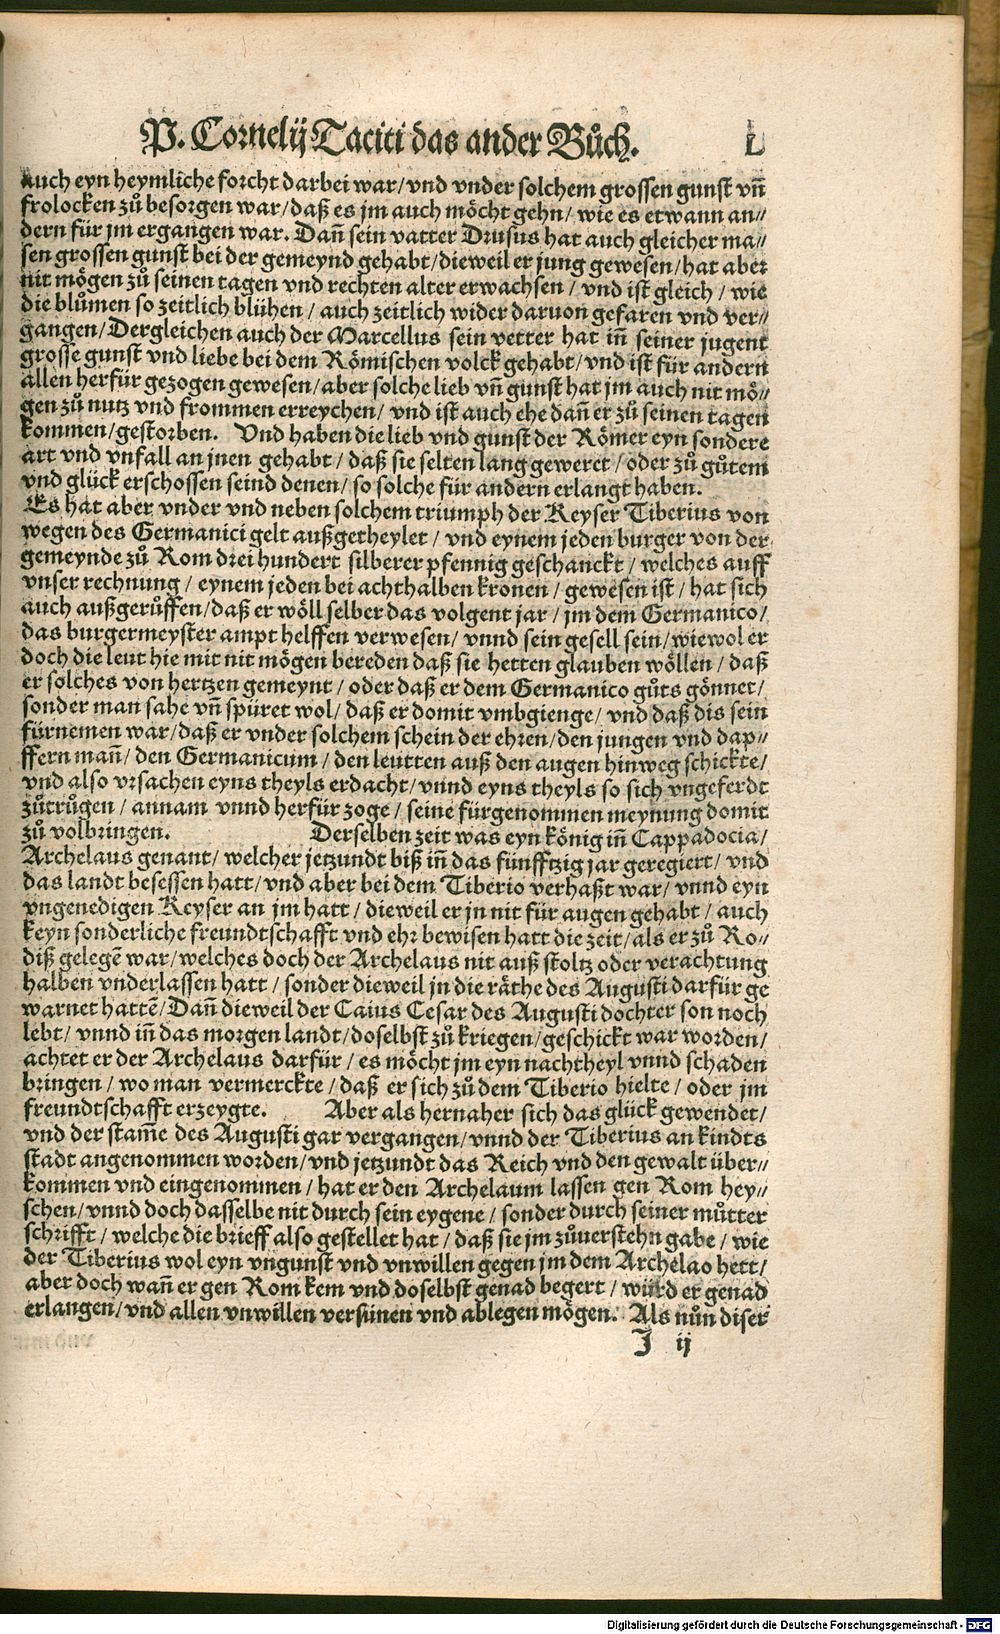 P. Cornelij Taciti das ander Bůch. L
auch eyn heymliche forcht darbei war/vnd vnder solchem grossen gunst vñ
frolocken zů besorgen war/daß es jm auch möcht gehn/ wie es etwann an⸗
dern für jm ergangen war. Dañ sein vatter Drusus hat auch gleicher ma⸗
sen grossen gunst bei der gemeynd gehabt/dieweil er jung gewesen/hat aber
nit mögen zů seinen tagen vnd rechten alter erwachsen / vnd ist gleich / wie
die blůmen so zeitlich blühen / auch zeitlich wider daruon gefaren vnd ver⸗
gangen/Dergleichen auch der Marcellus sein vetter hat iñ seiner jugent
grosse gunst vnd liebe bei dem Römischen volck gehabt/vnd ist für andern
allen herfür gezogen gewesen/aber solche lieb vñ gunst hat jm auch nit mö⸗
gen zů nutz vnd frommen erreychen/ vnd ist auch ehe dañ er zů seinen tagen
kommen/gestorben. Vnd haben die lieb vnd gunst der Römer eyn sondere
art vnd vnfall an jnen gehabt / daß sie selten lang geweret / oder zů gůtem
vnd glück erschossen seind denen/ so solche für andern erlangt haben.
Es hat aber vnder vnd neben solchem triumph der Keyser Tiberius von
wegen des Germanici gelt außgetheylet / vnd eynem jeden burger von der
gemeynde zů Rom drei hundert silberer pfennig geschanckt / welches auff
vnser rechnung / eynem jeden bei achthalben kronen / gewesen ist / hat sich
auch außgerůffen/daß er wöll selber das volgent jar / jm dem Germanico/
das burgermeyster ampt helffen verwesen/ vnnd sein gesell sein/wiewol er
doch die leut hie mit nit mögen bereden daß sie hetten glauben wöllen / daß
er solches von hertzen gemeynt / oder daß er dem Germanico gůts gönnet/
sonder man sahe vñ spüret wol/ daß er domit vmbgienge/ vnd daß dis sein
fürnemen war/daß er vnder solchem schein der ehren/den jungen vnd dap⸗
ffern mañ/ den Germanicum / den leutten auß den augen hinweg schickte/
vnd also vrsachen eyns theyls erdacht/vnnd eyns theyls so sich vngeferdt
zůtrůgen / annam vnnd herfür zoge / seine fürgenommen meynung domit
zů volbringen. Derselben zeit was eyn könig iñ Cappadocia/
Archelaus genant/ welcher jetzundt biß iñ das fünfftzig jar geregiert/ vnd
das landt besessen hatt/vnd aber bei dem Tiberio verhaßt war/ vnnd eyn
vngenedigen Keyser an jm hatt / dieweil er jn nit für augen gehabt / auch
keyn sonderliche freundtschafft vnd ehr bewisen hatt die zeit/als er zů Ro⸗
diß gelegē war/welches doch der Archelaus nit auß stoltz oder verachtung
halben vnderlassen hatt / sonder dieweil jn die räthe des Augusti darfür ge
warnet hattē/Dañ dieweil der Caius Cesar des Augusti dochter son noch
lebt/ vnnd iñ das morgen landt/doselbst zů kriegen/geschickt war worden/
achtet er der Archelaus darfür / es möcht jm eyn nachtheyl vnnd schaden
bringen / wo man vermerckte / daß er sich zů dem Tiberio hielte / oder jm
freundtschafft erzeygte. Aber als hernaher sich das glück gewendet/
vnd der stam̄e des Augusti gar vergangen/vnnd der Tiberius an kindts
stadt angenommen worden/vnd jetzundt das Reich vnd den gewalt über⸗
kommen vnd eingenommen / hat er den Archelaum lassen gen Rom hey⸗
schen/vnnd doch dasselbe nit durch sein eygene / sonder durch seiner můtter
schrifft / welche die brieff also gestellet hat / daß sie jm zůuerstehn gabe / wie
der Tiberius wol eyn vngunst vnd vnwillen gegen jm dem Archelao hett/
aber doch wañ er gen Rom kem vnd doselbst genad begert / würd er genad
erlangen/vnd allen vnwillen versünen vnd ablegen mögen. Als nůn diser
J ij
Digitalisierung gefördert durch die Deutsche Forschungsgemeinschaft - DFG